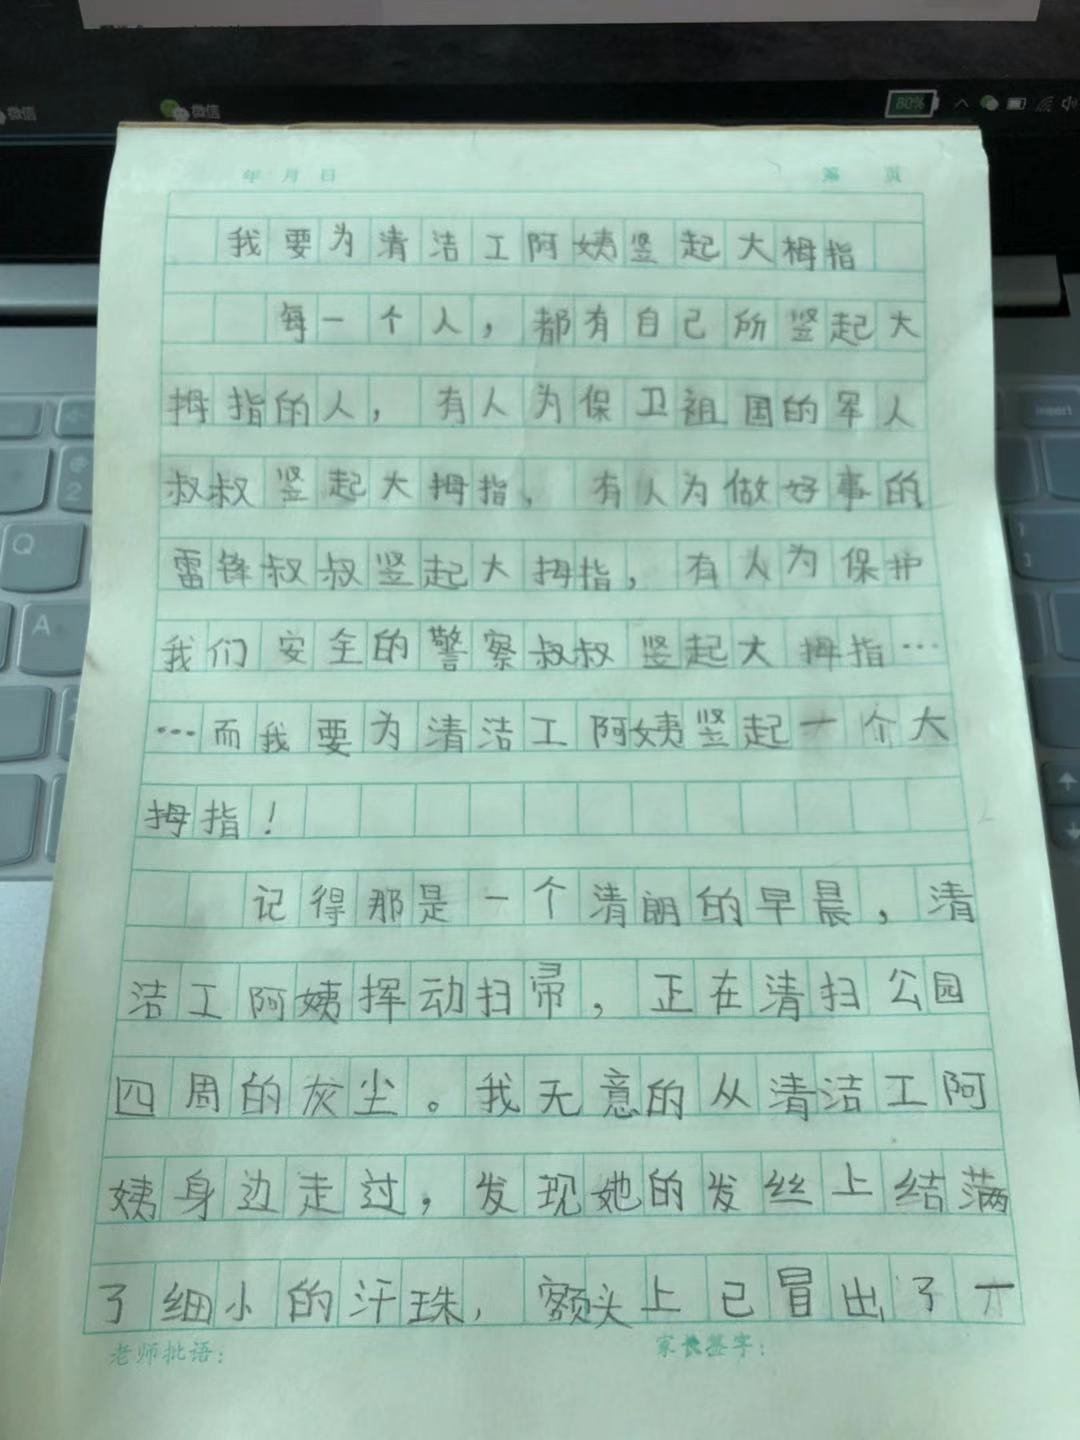 微信
微信
80%
年 月 日
第 页
我要为清洁工阿姨竖起大拇指
每一个人，都有自己所竖起大
拇指的人，有人为保卫祖国的军人
叔叔竖起大拇指，有人为做好事的
雷锋叔叔竖起大拇指，有人为保护
我们安全的警察叔叔竖起大拇指…
…而我要为清洁工阿姨竖起一个大
拇指！
记得那是一个清朗的早晨，清
洁工阿姨挥动扫帚，正在清扫公园
四周的灰尘。我无意的从清洁工阿
姨身边走过，发现她的发丝上结满
了细小的汗珠，额头上已冒出了
老师批语：
家长签字：
insert
@
2
Q
A